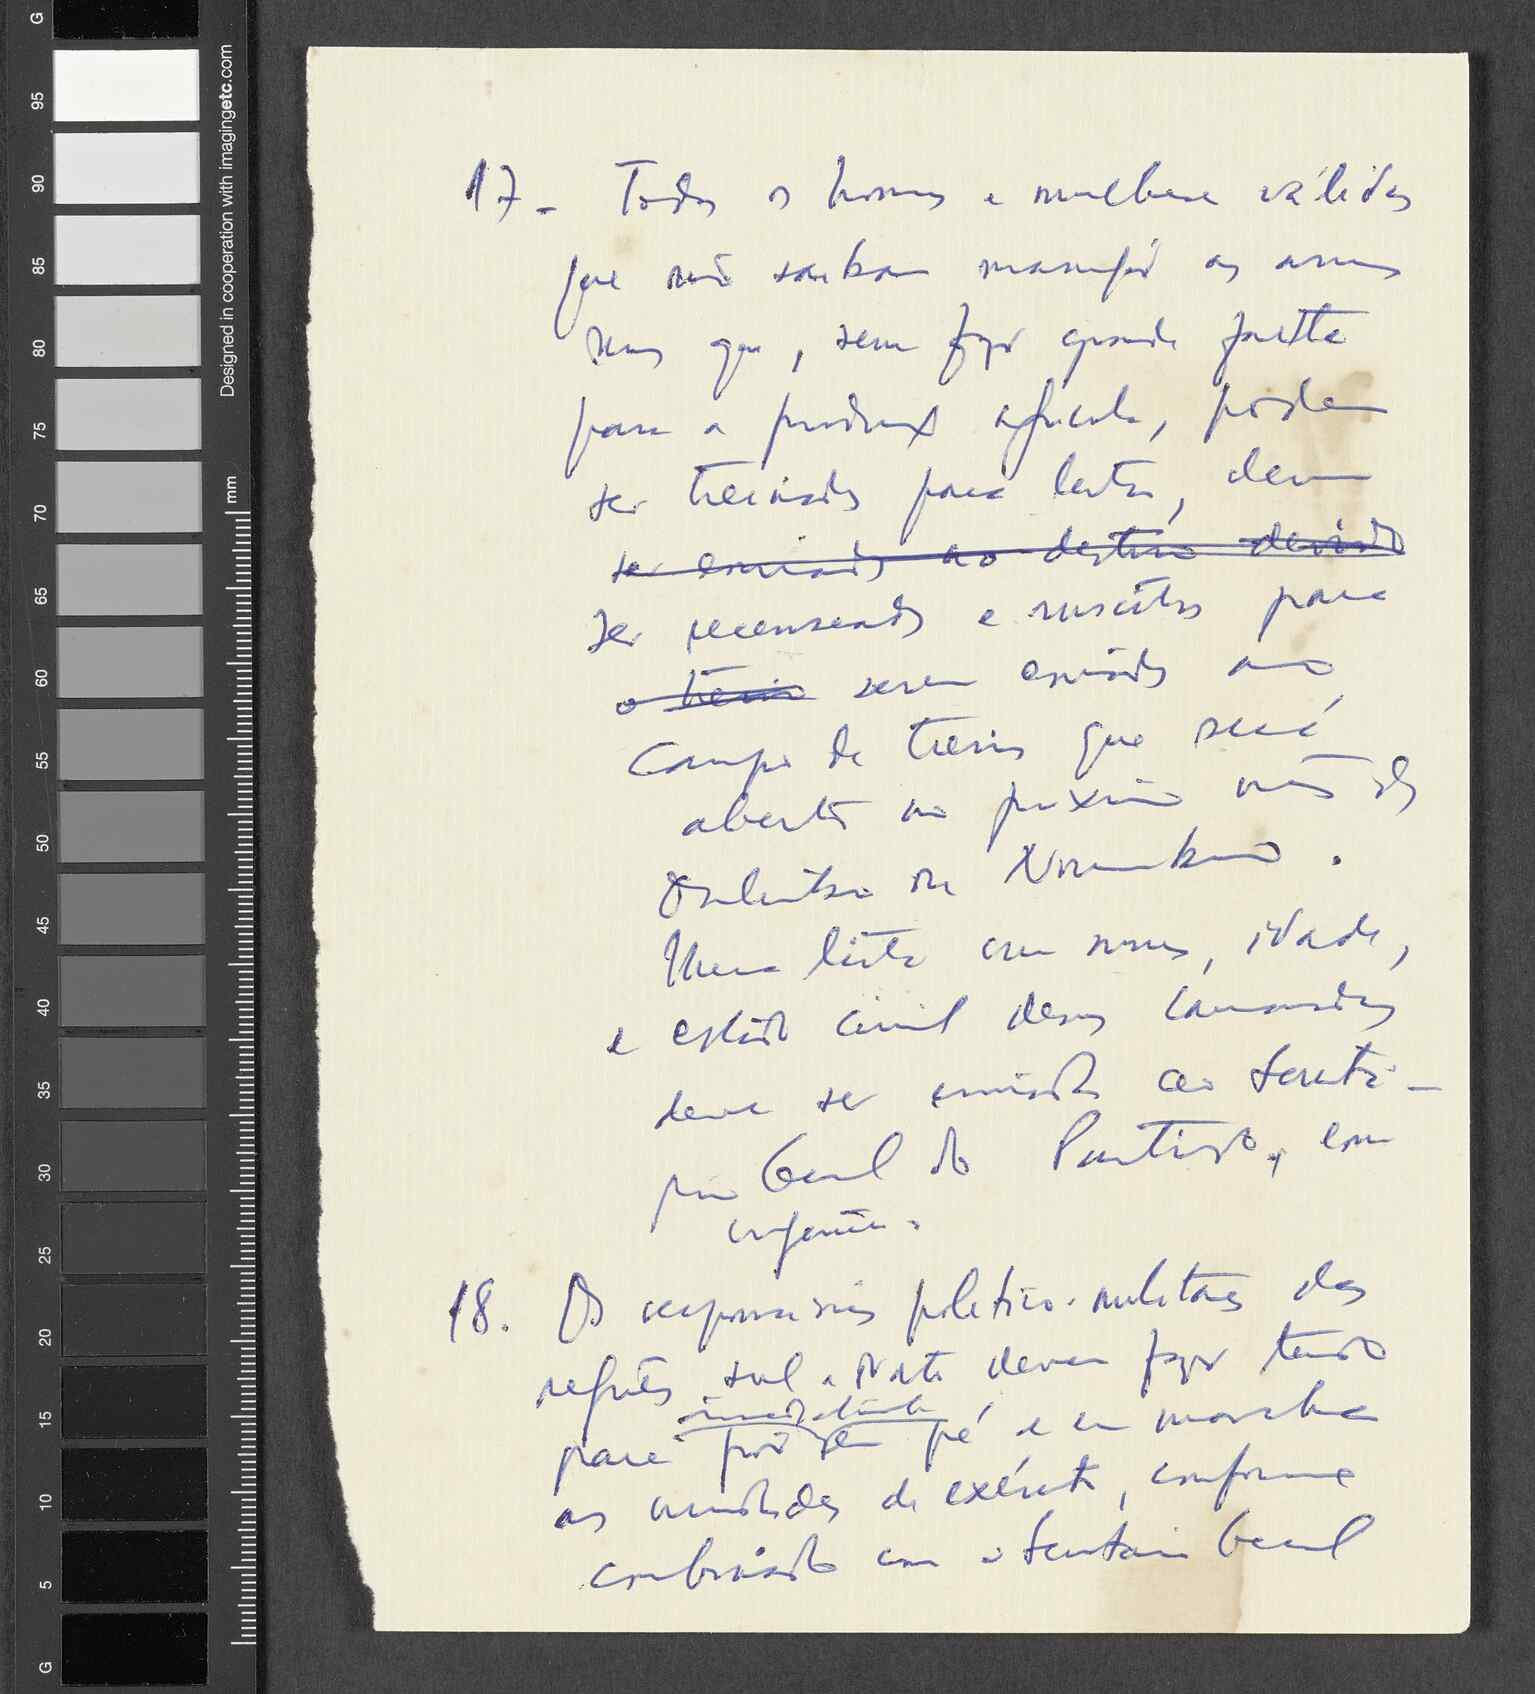 G
95
90
85
80
75
70
65
60
55
50
45
40
35
30
25
20
15
10
5
G
Designed in cooperation with imagingetc.com
mm
17- Todos os homens e mulheres válidos
que não saibam manejar as armas
mas que, sem fazer grande falta
para a produção agrícola, podem
ser treinados para luta, devem
ser enviados ao destino devido
ser recenseados e inscritos para
o treino serem enviados ao
campo de treino que será
aberto no próximo mês de
Outubro ou Novembro.
Uma lista com nomes, idade,
e estado civil desses camaradas
deve ser enviada ao Secretá-
rio Geral do Partido, com
urgência.
18. Os responsáveis político-militares das
regiões Sul e Norte devem fazer tudo
imediatamente
para pôr em pé e em marcha
as unidades de exército, conforme
combinado com o Secretário Geral